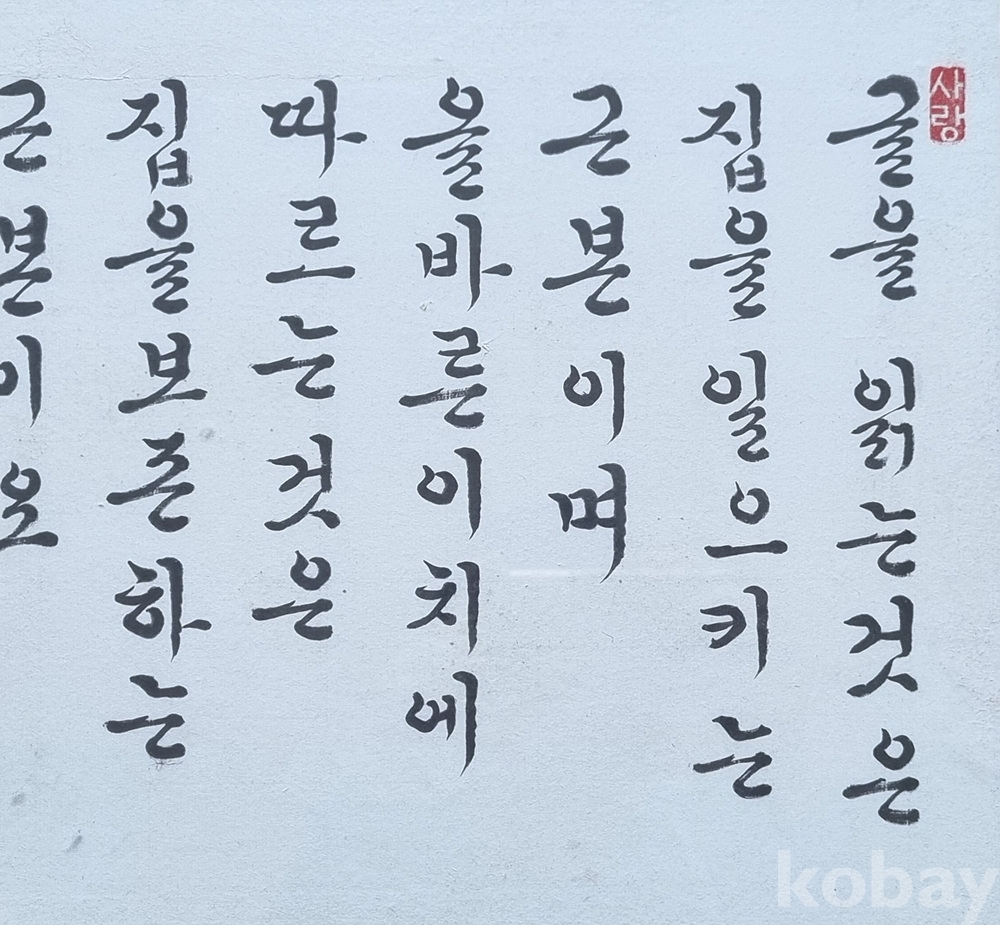 사랑
글을 읽는것은
집을 일으키는
근본이며
올바른이치에
따르는것은
집을보존하는
근본이오
kobay